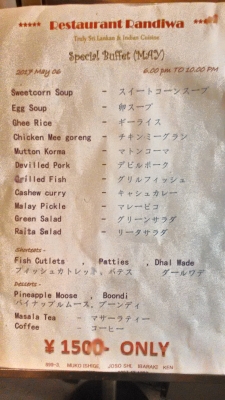 ***** Restaurant Randiwa *****
Truly Sri Lankan & Indian Cuisine
Special Buffet (MAY)
2017 May 06 6.00 pm TO 10.00 PM
Sweetcorn Soup - スイートコーンスープ
Egg Soup - 卵スープ
Ghee Rice - ギーライス
Chicken Mee goreng - チキンミーグラン
Mutton Korma - マトンコーマ
Devilled Pork - デビルポーク
Grilled Fish - グリルフィッシュ
Cashew curry - キャシュカレー
Malay Pickle - マレーピコ
Green Salad - グリーンサラダ
Raita Salad - リータサラダ
Shorteats -
Fish Cutlets , Patties , Dhal Made
フィッシュカトレット, パテス ダールワデ
Desserts -
Pineapple Moose , Boondi
パイナップルムース, ブーンディ
Masala Tea - マサーラティー
Coffee - コーヒー
¥ 1500- ONLY
MUKO ISHIGE, JOSO SHI, IBARAKI KEN